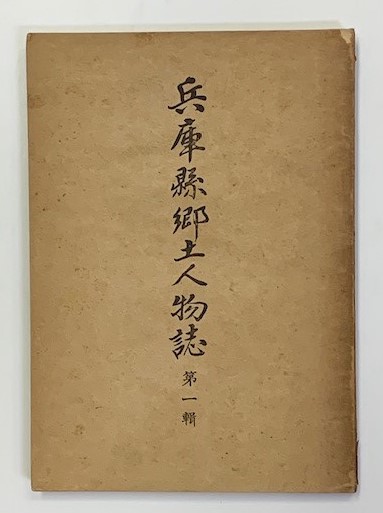 兵庫縣郷土人物誌 第一輯